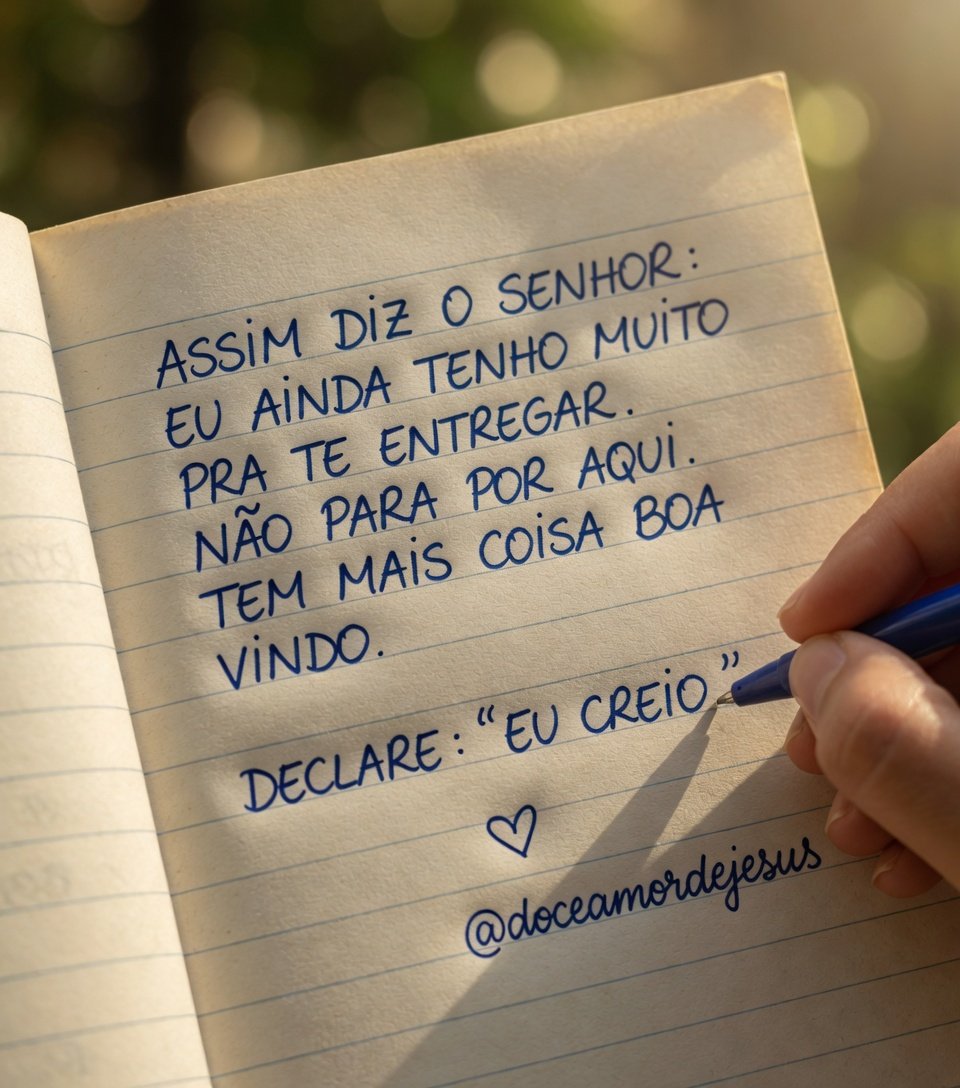 ASSIM DIZ O SENHOR:
EU AINDA TENHO MUITO
PRA TE ENTREGAR.
NÃO PARA POR AQUI.
TEM MAIS COISA BOA
VINDO.
DECLARE: “EU CREIO”
@doceamordejesus